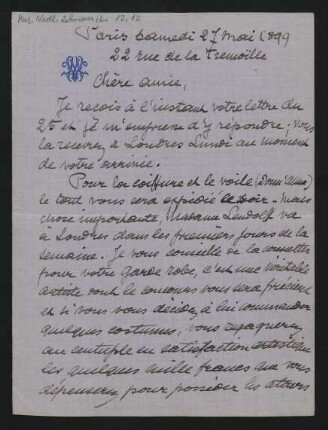 Mus. Nachl. Lehmann, Lilli 12, 12
Paris samedi 27 Mai 1899
22 rue de la Tremoïlle
Chère amie,
Je reçois à l'instant votre lettre du
25 et je m'empresse d'y répondre; vous
la recevrez à Londres Lundi au moment
de votre arrivée.
Pour la coiffure et le voile (Donn'anna)
le tout vous sera expédié ce soir. Mais
chose importante, Madame Landolf va
à Londres dans les premiers jours de la
semaine. Je vous conseille de la consulter
pour votre Garde robe, c'est une véritable
artiste dont le concours vous sera précieux
et si vous vous décidez à lui commander
quelques costumes, vous regagnerez
au centuple en satisfaction artistique
les quelques mille francs que vous
dépenserez pour posséder les atours